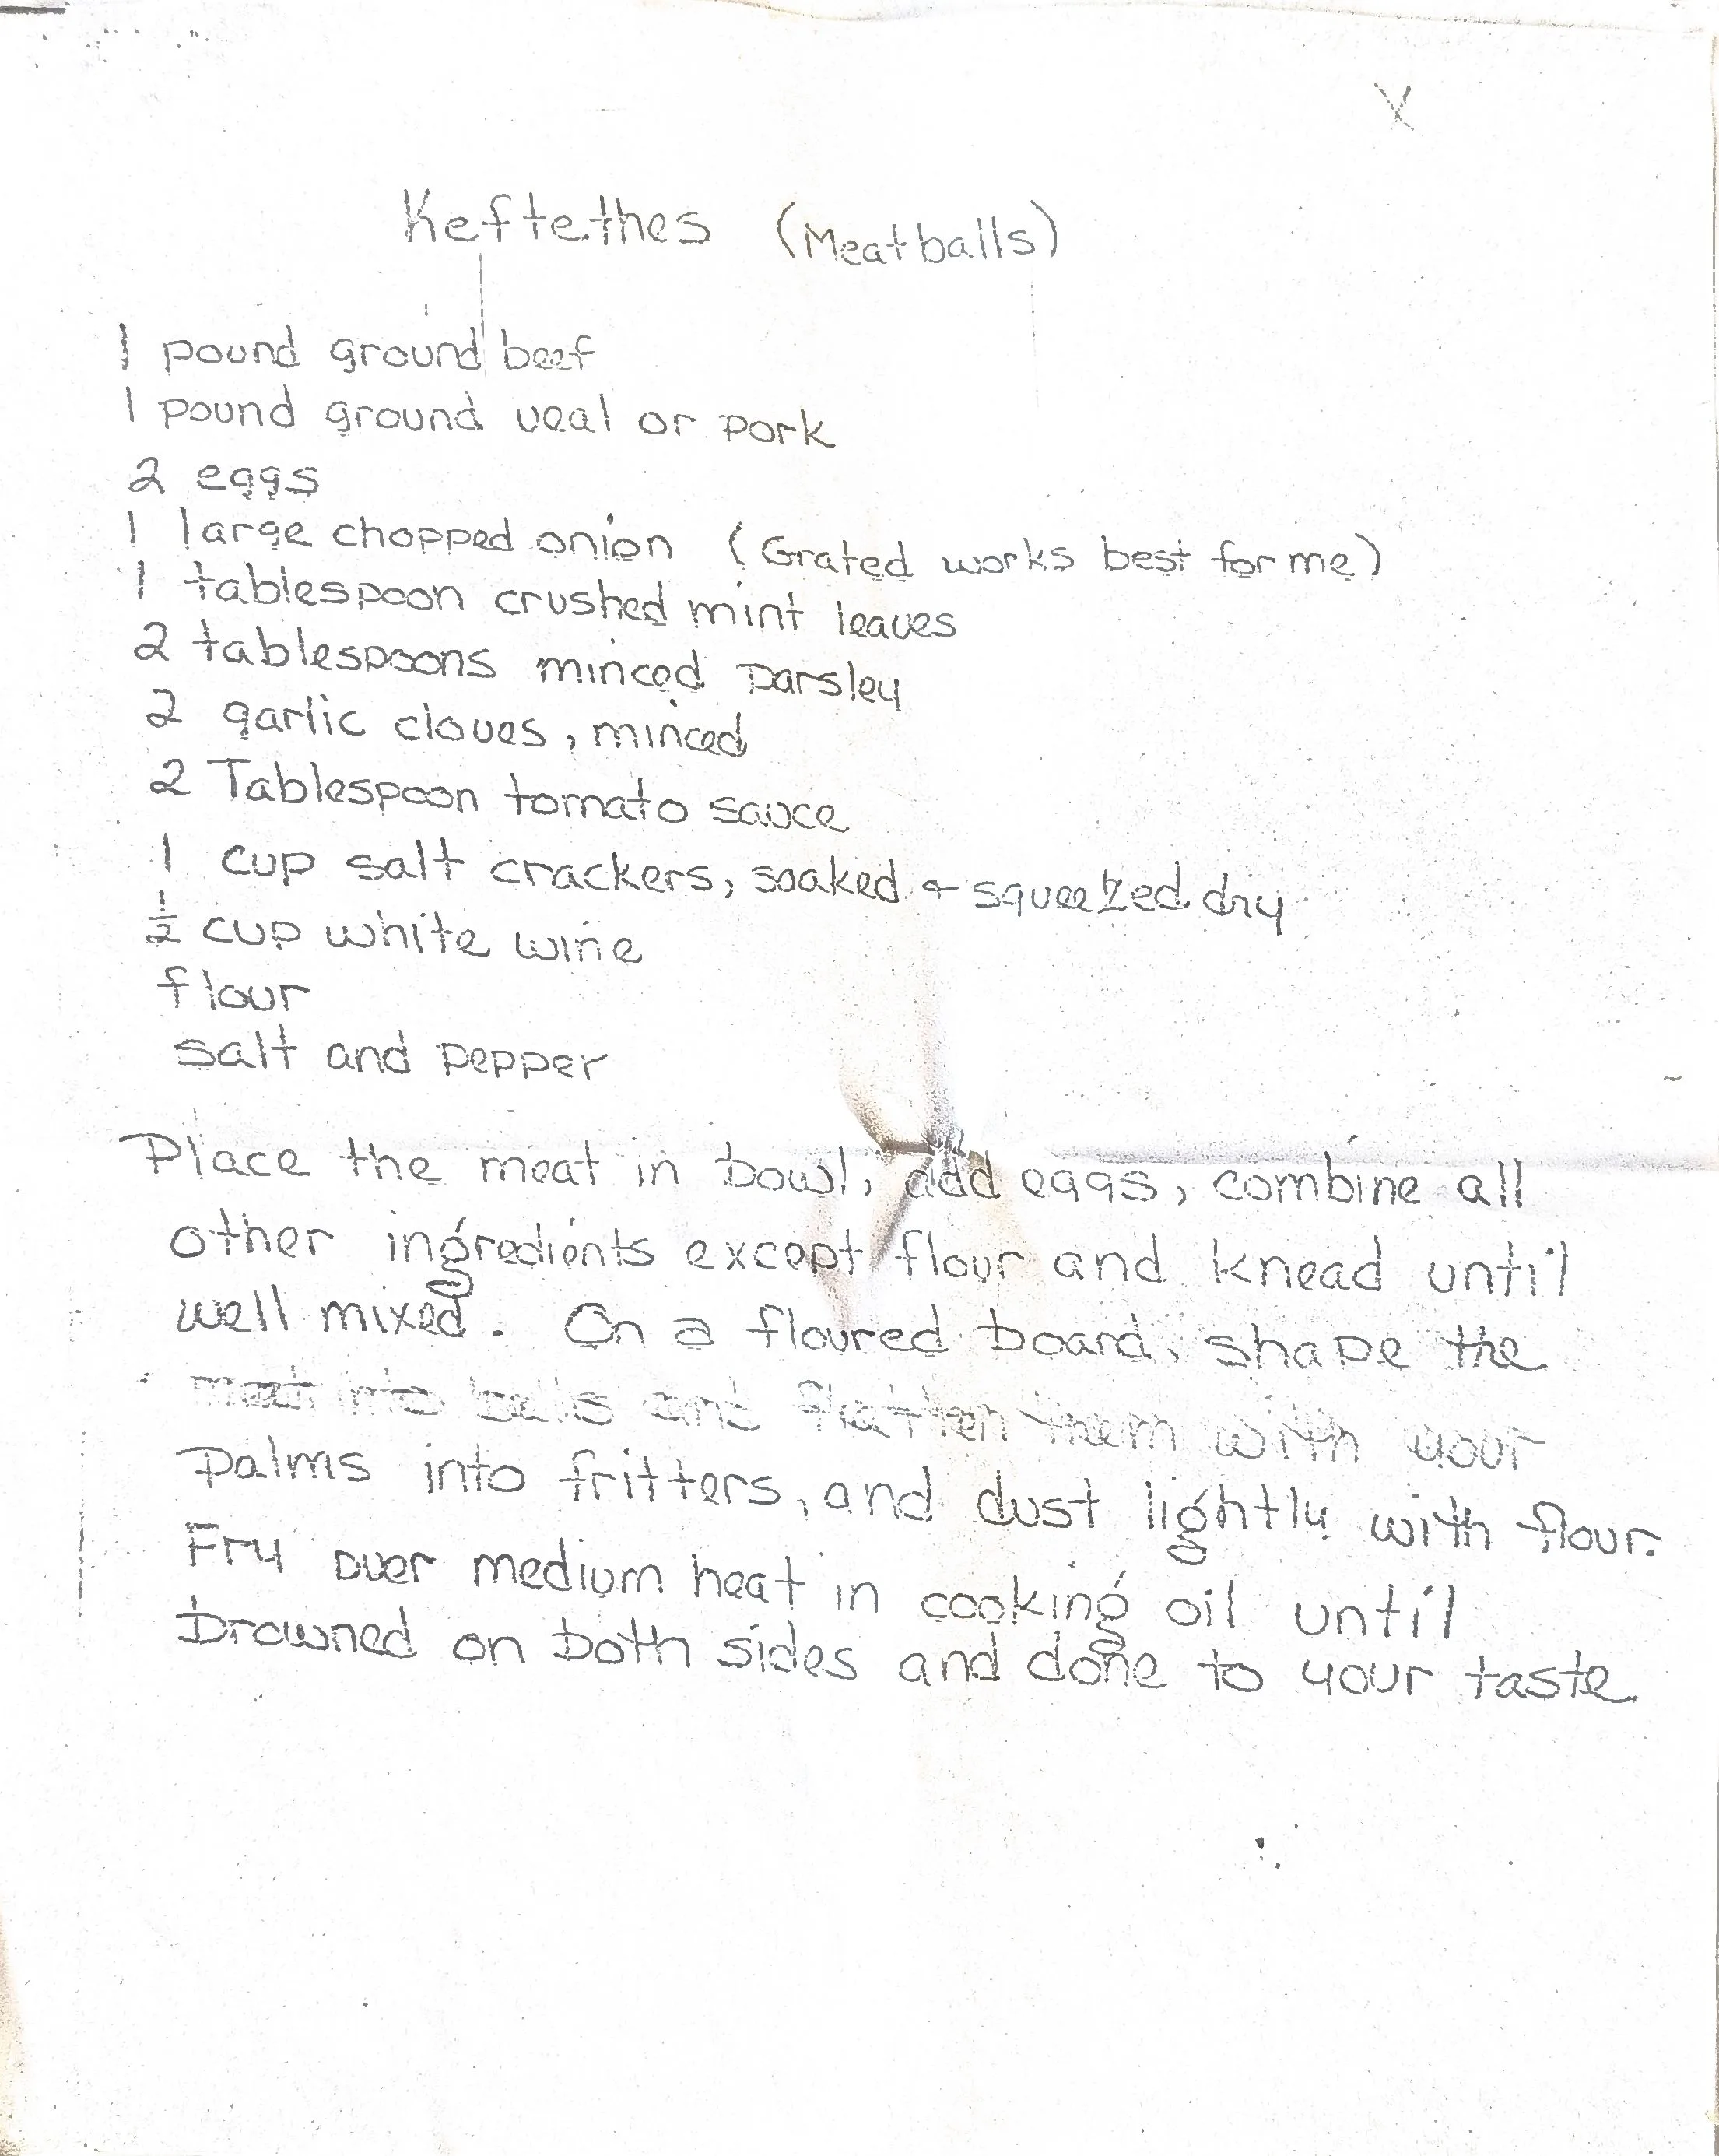 X
Keftethes (Meatballs)
1 pound ground beef
1 pound ground veal or pork
2 eggs
1 large chopped onion (Grated works best for me)
1 tablespoon crushed mint leaves
2 tablespoons minced parsley
2 garlic cloves, minced
2 Tablespoon tomato sauce
1 cup salt crackers, soaked + squeezed dry
1/2 cup white wine
flour
salt and pepper
Place the meat in bowl, add eggs, combine all
other ingredients except flour and knead until
well mixed. On a floured board, shape the
meat into balls and flatten them with your
palms into fritters, and dust lightly with flour.
Fry over medium heat in cooking oil until
browned on both sides and done to your taste.